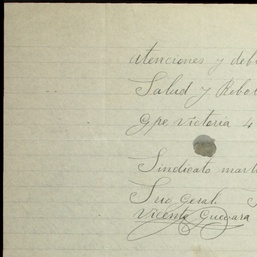 atenciones y deb
Salud y Rebol
Gpe Victoria 4
Sindicato mart
Srio Geral. S
Vicente Guegara